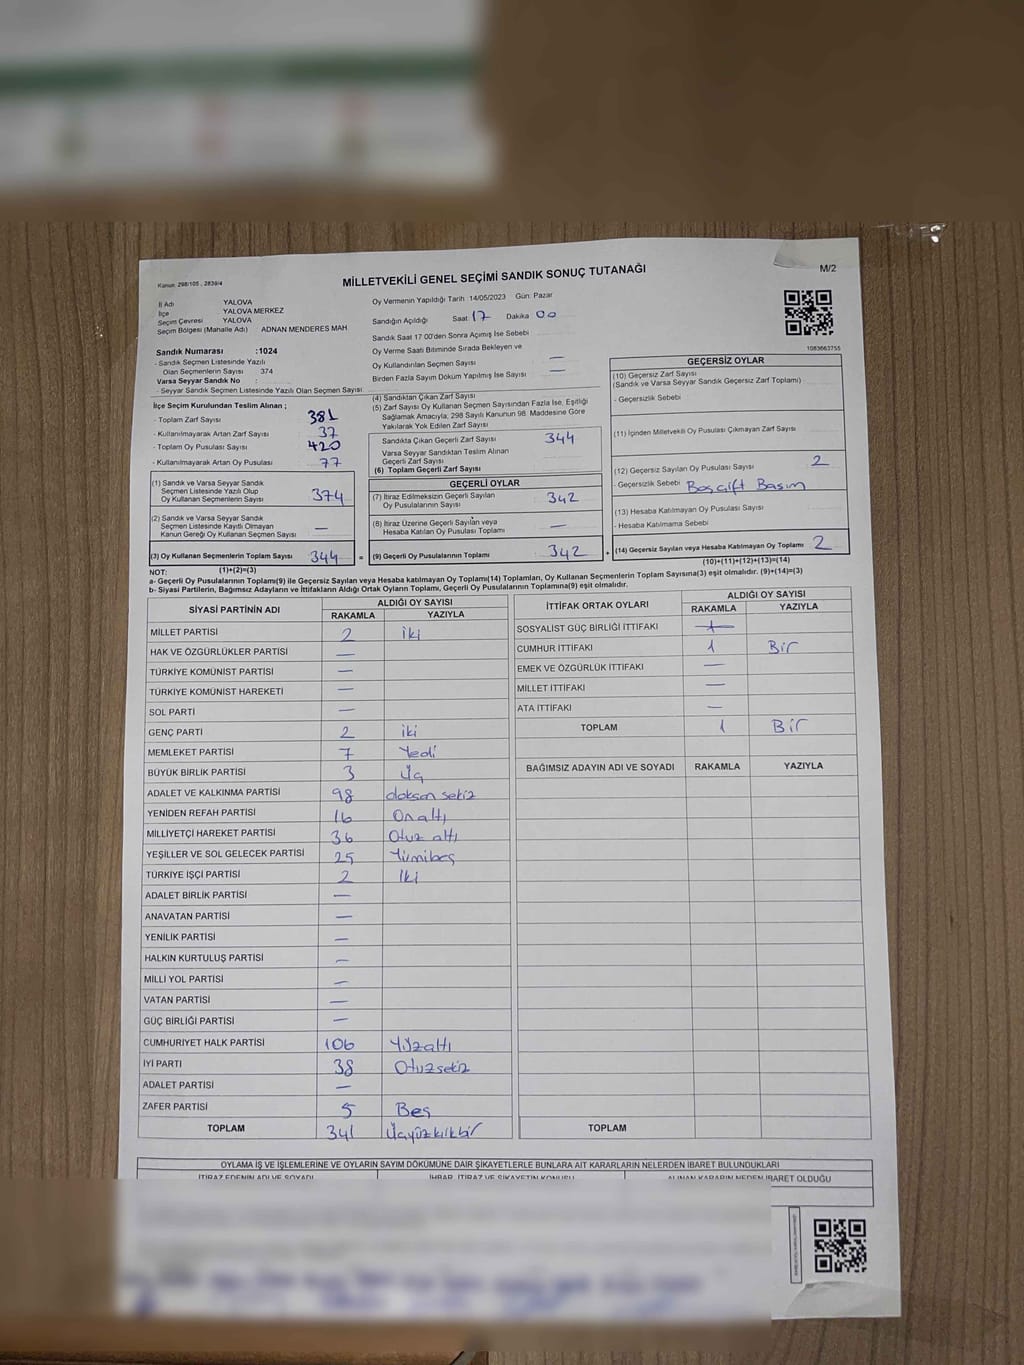 Kanun: 298/105 , 2839/4
MİLLETVEKİLİ GENEL SEÇİMİ SANDIK SONUÇ TUTANAĞI
M/2
İl Adı YALOVA
İlçe YALOVA MERKEZ
Seçim Çevresi YALOVA
Seçim Bölgesi (Mahalle Adı) ADNAN MENDERES MAH
Sandık Numarası :1024
- Sandık Seçmen Listesinde Yazılı
Olan Seçmenlerin Sayısı 374
Varsa Seyyar Sandık No :
- Seyyar Sandık Seçmen Listesinde Yazılı Olan Seçmen Sayısı:
Oy Vermenin Yapıldığı Tarih 14/05/2023 Gün: Pazar
Sandığın Açıldığı Saat 17 Dakika 00
Sandık Saat 17:00'den Sonra Açımış İse Sebebi
Oy Verme Saati Bitiminde Sırada Bekleyen ve
Oy Kullandırılan Seçmen Sayısı —
Birden Fazla Sayım Döküm Yapılmış İse Sayısı —
1083663755
İlçe Seçim Kurulundan Teslim Alınan ;
- Toplam Zarf Sayısı 381
- Kullanılmayarak Artan Zarf Sayısı 37
- Toplam Oy Pusulası Sayısı 420
- Kullanılmayarak Artan Oy Pusulası 77
(1) Sandık ve Varsa Seyyar Sandık
Seçmen Listesinde Yazılı Olup
Oy Kullanan Seçmenlerin Sayısı 374
(2) Sandık ve Varsa Seyyar Sandık
Seçmen Listesinde Kayıtlı Olmayan
Kanun Gereği Oy Kullanan Seçmen Sayısı —
(3) Oy Kullanan Seçmenlerin Toplam Sayısı 344 =
(1)+(2)=(3)
(4) Sandıktan Çıkan Zarf Sayısı
(5) Zarf Sayısı Oy Kullanan Seçmen Sayısından Fazla İse, Eşitliği
Sağlamak Amacıyla; 298 Sayılı Kanunun 98. Maddesine Göre
Yakılarak Yok Edilen Zarf Sayısı
Sandıkta Çıkan Geçerli Zarf Sayısı 344
Varsa Seyyar Sandıktan Teslim Alınan
Geçerli Zarf Sayısı
(6) Toplam Geçerli Zarf Sayısı
GEÇERLİ OYLAR
(7) İtiraz Edilmeksizin Geçerli Sayılan
Oy Pusulalarının Sayısı 342
(8) İtiraz Üzerine Geçerli Sayılan veya
Hesaba Katılan Oy Pusulası Toplamı —
(9) Geçerli Oy Pusulalarının Toplamı 342 +
GEÇERSİZ OYLAR
(10) Geçersiz Zarf Sayısı
(Sandık ve Varsa Seyyar Sandık Geçersiz Zarf Toplamı)
- Geçersizlik Sebebi
(11) İçinden Milletvekili Oy Pusulası Çıkmayan Zarf Sayısı
(12) Geçersiz Sayılan Oy Pusulası Sayısı 2
- Geçersizlik Sebebi Boş Çift Basım
(13) Hesaba Katılmayan Oy Pusulası Sayısı
- Hesaba Katılmama Sebebi
(14) Geçersiz Sayılan veya Hesaba Katılmayan Oy Toplamı 2
(10)+(11)+(12)+(13)=(14)
NOT:
a- Geçerli Oy Pusulalarının Toplamı(9) ile Geçersiz Sayılan veya Hesaba katılmayan Oy Toplamı(14) Toplamları, Oy Kullanan Seçmenlerin Toplam Sayısına(3) eşit olmalıdır. (9)+(14)=(3)
b- Siyasi Partilerin, Bağımsız Adayların ve İttifakların Aldığı Ortak Oyların Toplamı, Geçerli Oy Pusulalarının Toplamına(9) eşit olmalıdır.
SİYASİ PARTİNİN ADI ALDIĞI OY SAYISI
RAKAMLA YAZIYLA
MİLLET PARTİSİ 2 iki
HAK VE ÖZGÜRLÜKLER PARTİSİ —
TÜRKİYE KOMÜNİST PARTİSİ —
TÜRKİYE KOMÜNİST HAREKETİ —
SOL PARTİ —
GENÇ PARTİ 2 iki
MEMLEKET PARTİSİ 7 Yedi
BÜYÜK BİRLİK PARTİSİ 3 Üç
ADALET VE KALKINMA PARTİSİ 98 doksan sekiz
YENİDEN REFAH PARTİSİ 16 On altı
MİLLİYETÇİ HAREKET PARTİSİ 36 Otuz altı
YEŞİLLER VE SOL GELECEK PARTİSİ 25 Yirmibeş
TÜRKİYE İŞÇİ PARTİSİ 2 İki
ADALET BİRLİK PARTİSİ —
ANAVATAN PARTİSİ —
YENİLİK PARTİSİ —
HALKIN KURTULUŞ PARTİSİ —
MİLLİ YOL PARTİSİ —
VATAN PARTİSİ —
GÜÇ BİRLİĞİ PARTİSİ —
CUMHURİYET HALK PARTİSİ 106 Yüzaltı
İYİ PARTİ 38 Otuzsekiz
ADALET PARTİSİ —
ZAFER PARTİSİ 5 Beş
TOPLAM 341 Üçyüzkırkbir
İTTİFAK ORTAK OYLARI ALDIĞI OY SAYISI
RAKAMLA YAZIYLA
SOSYALİST GÜÇ BİRLİĞİ İTTİFAKI
CUMHUR İTTİFAKI 1 Bir
EMEK VE ÖZGÜRLÜK İTTİFAKI —
MİLLET İTTİFAKI —
ATA İTTİFAKI —
TOPLAM 1 Bir
BAĞIMSIZ ADAYIN ADI VE SOYADI RAKAMLA YAZIYLA
TOPLAM
OYLAMA İŞ VE İŞLEMLERİNE VE OYLARIN SAYIM DÖKÜMÜNE DAİR ŞİKAYETLERLE BUNLARA AİT KARARLARIN NELERDEN İBARET BULUNDUKLARI
İTİRAZ EDENİN ADI VE SOYADI İHBAR, İTİRAZ VE ŞİKAYETİN KONUSU ALINAN KARARIN NEDEN İBARET OLDUĞU